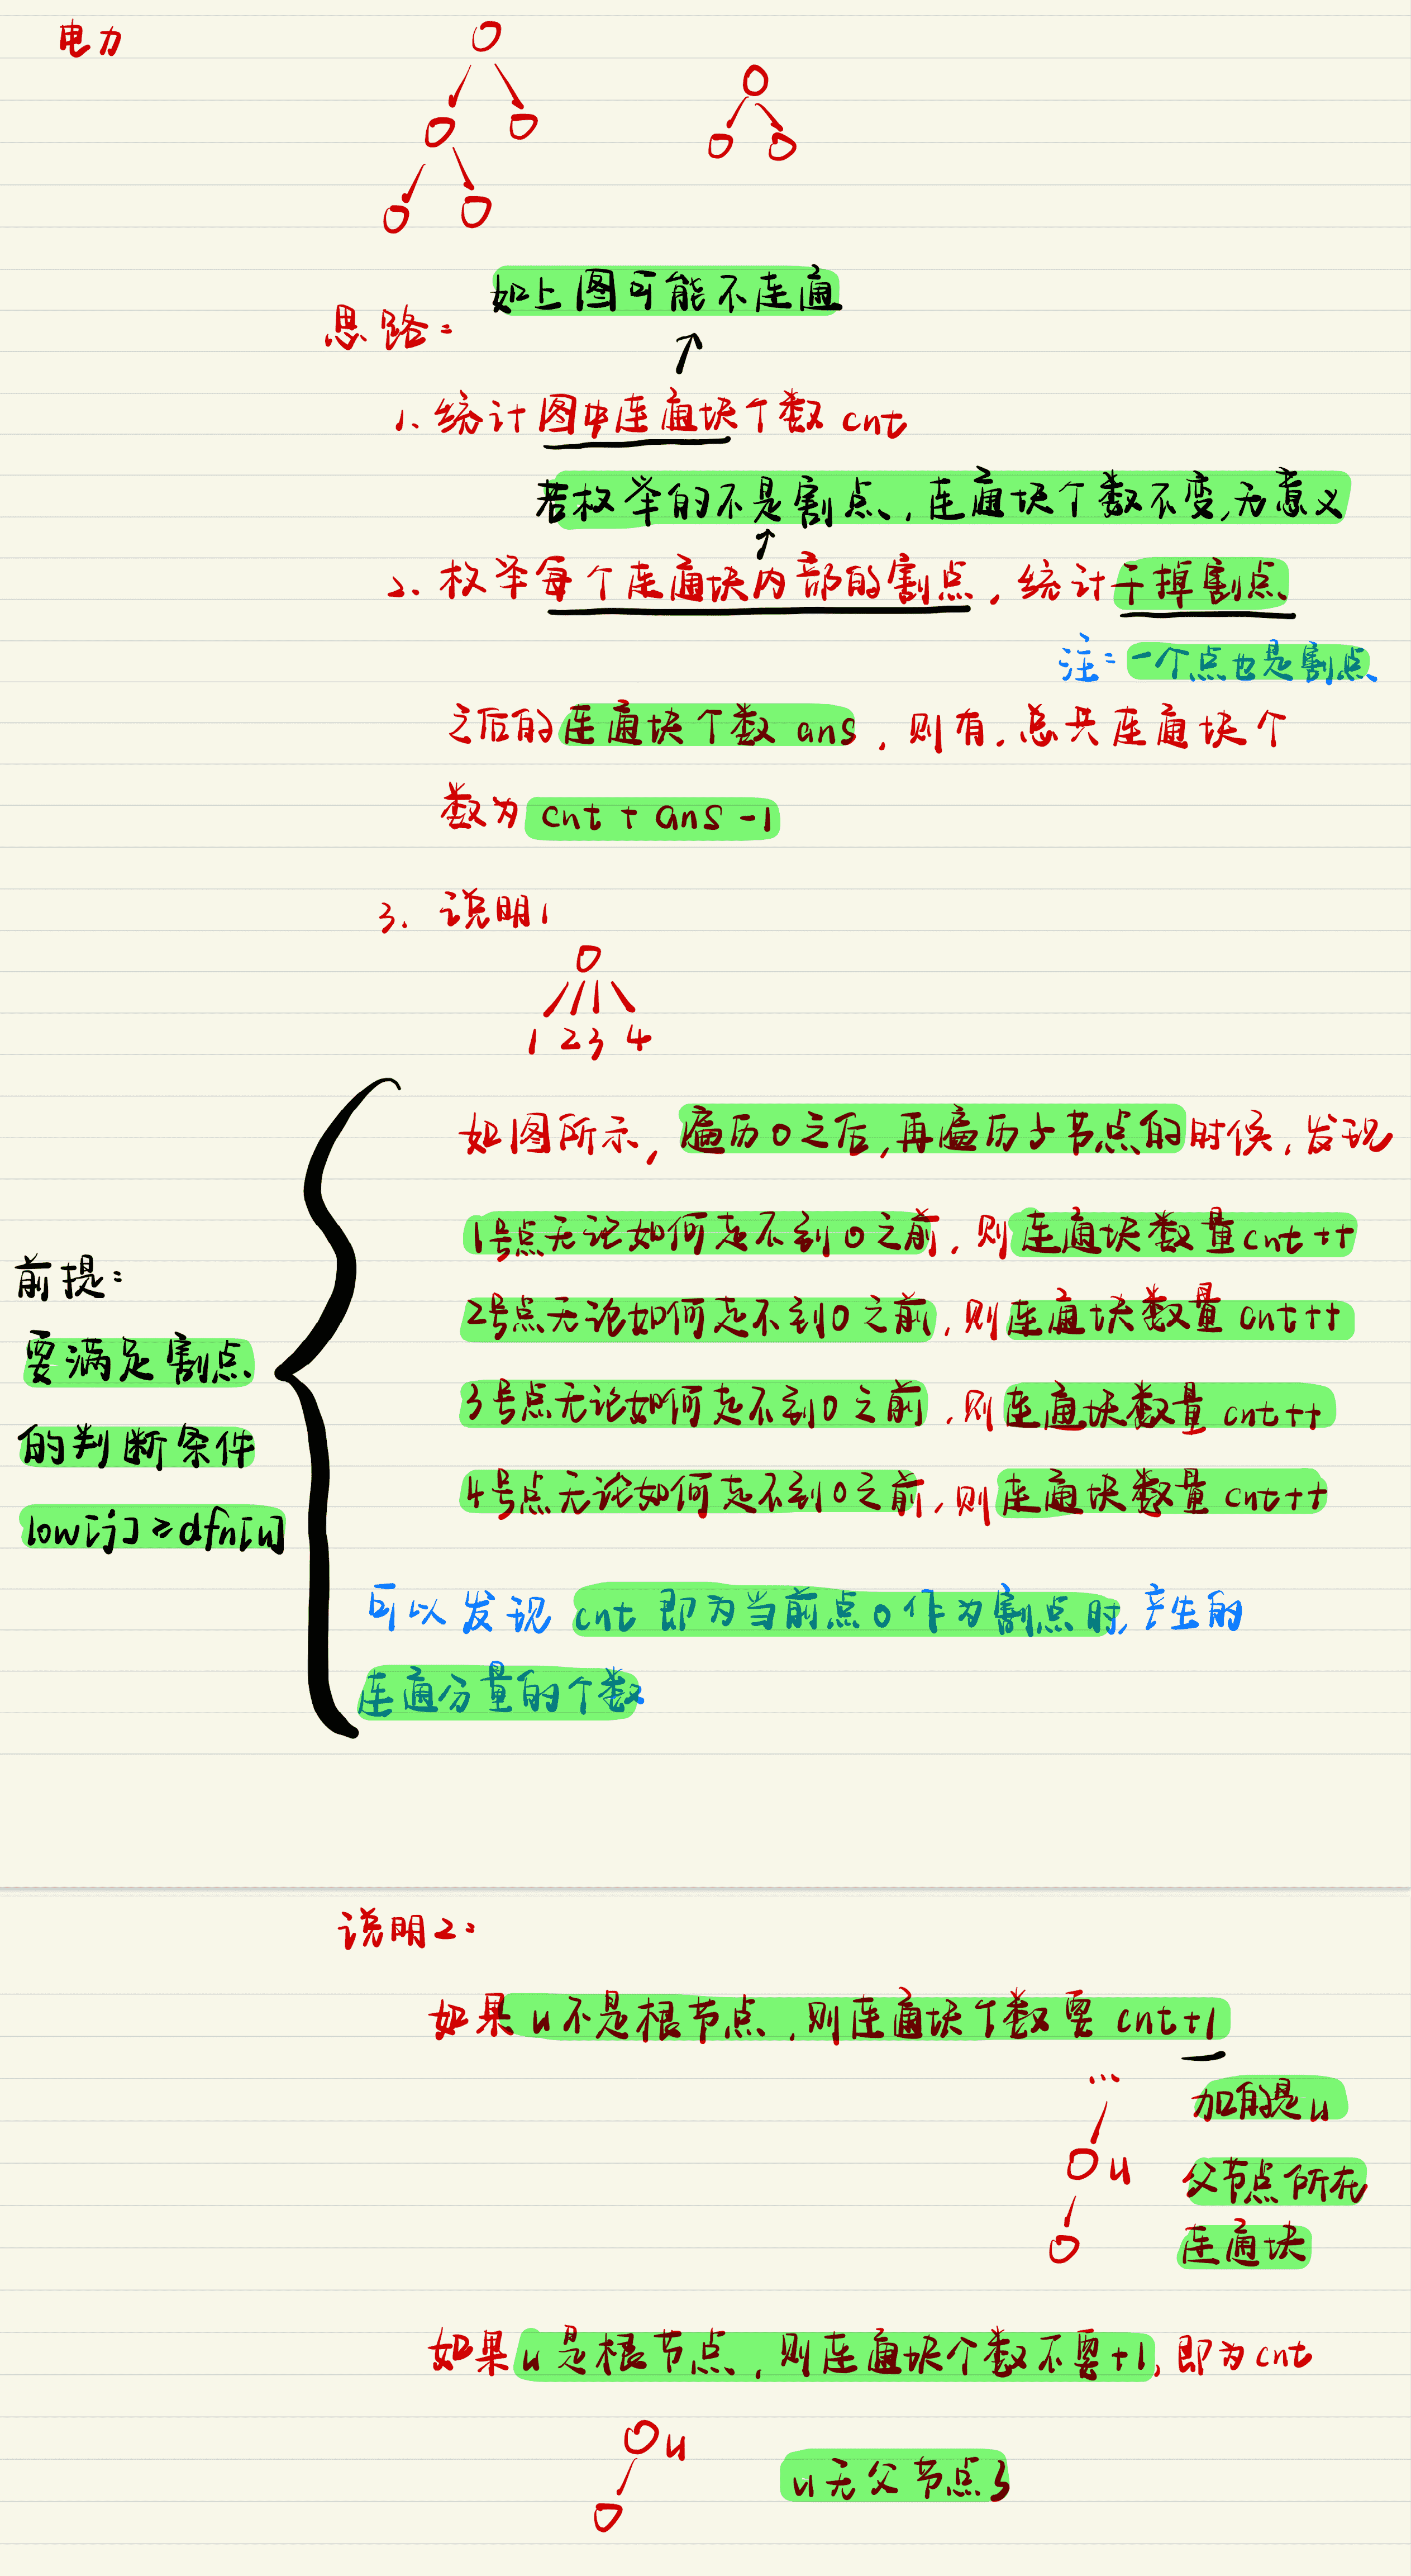 电力
如上图可能不连通
思路:
1. 统计图中连通块个数 cnt
若枚举的不是割点,连通块个数不变,无意义
2. 枚举每个连通块内部的割点,统计干掉割点
注:一个点也是割点
之后的连通块个数 ans,则有,总共连通块个
数为 cnt + ans - 1
3. 说明1
0
1 2 3 4
如图所示,遍历0之后,再遍历子节点的时候,发现
1号点无论如何走不到0之前,则连通块数量cnt++
前提:
2号点无论如何走不到0之前,则连通块数量 cnt++
要满足割点
3号点无论如何走不到0之前,则连通块数量 cnt++
的判断条件
4号点无论如何走不到0之前,则连通块数量 cnt++
low[j] ≥ dfn[u]
可以发现 cnt 即为当前点0作为割点时,产生的
连通分量的个数
说明2:
如果 u 不是根节点,则连通块个数要 cnt+1
...
加的是u
u
父节点所在
连通块
如果 u 是根节点,则连通块个数不要+1,即为cnt
u
u无父节点了